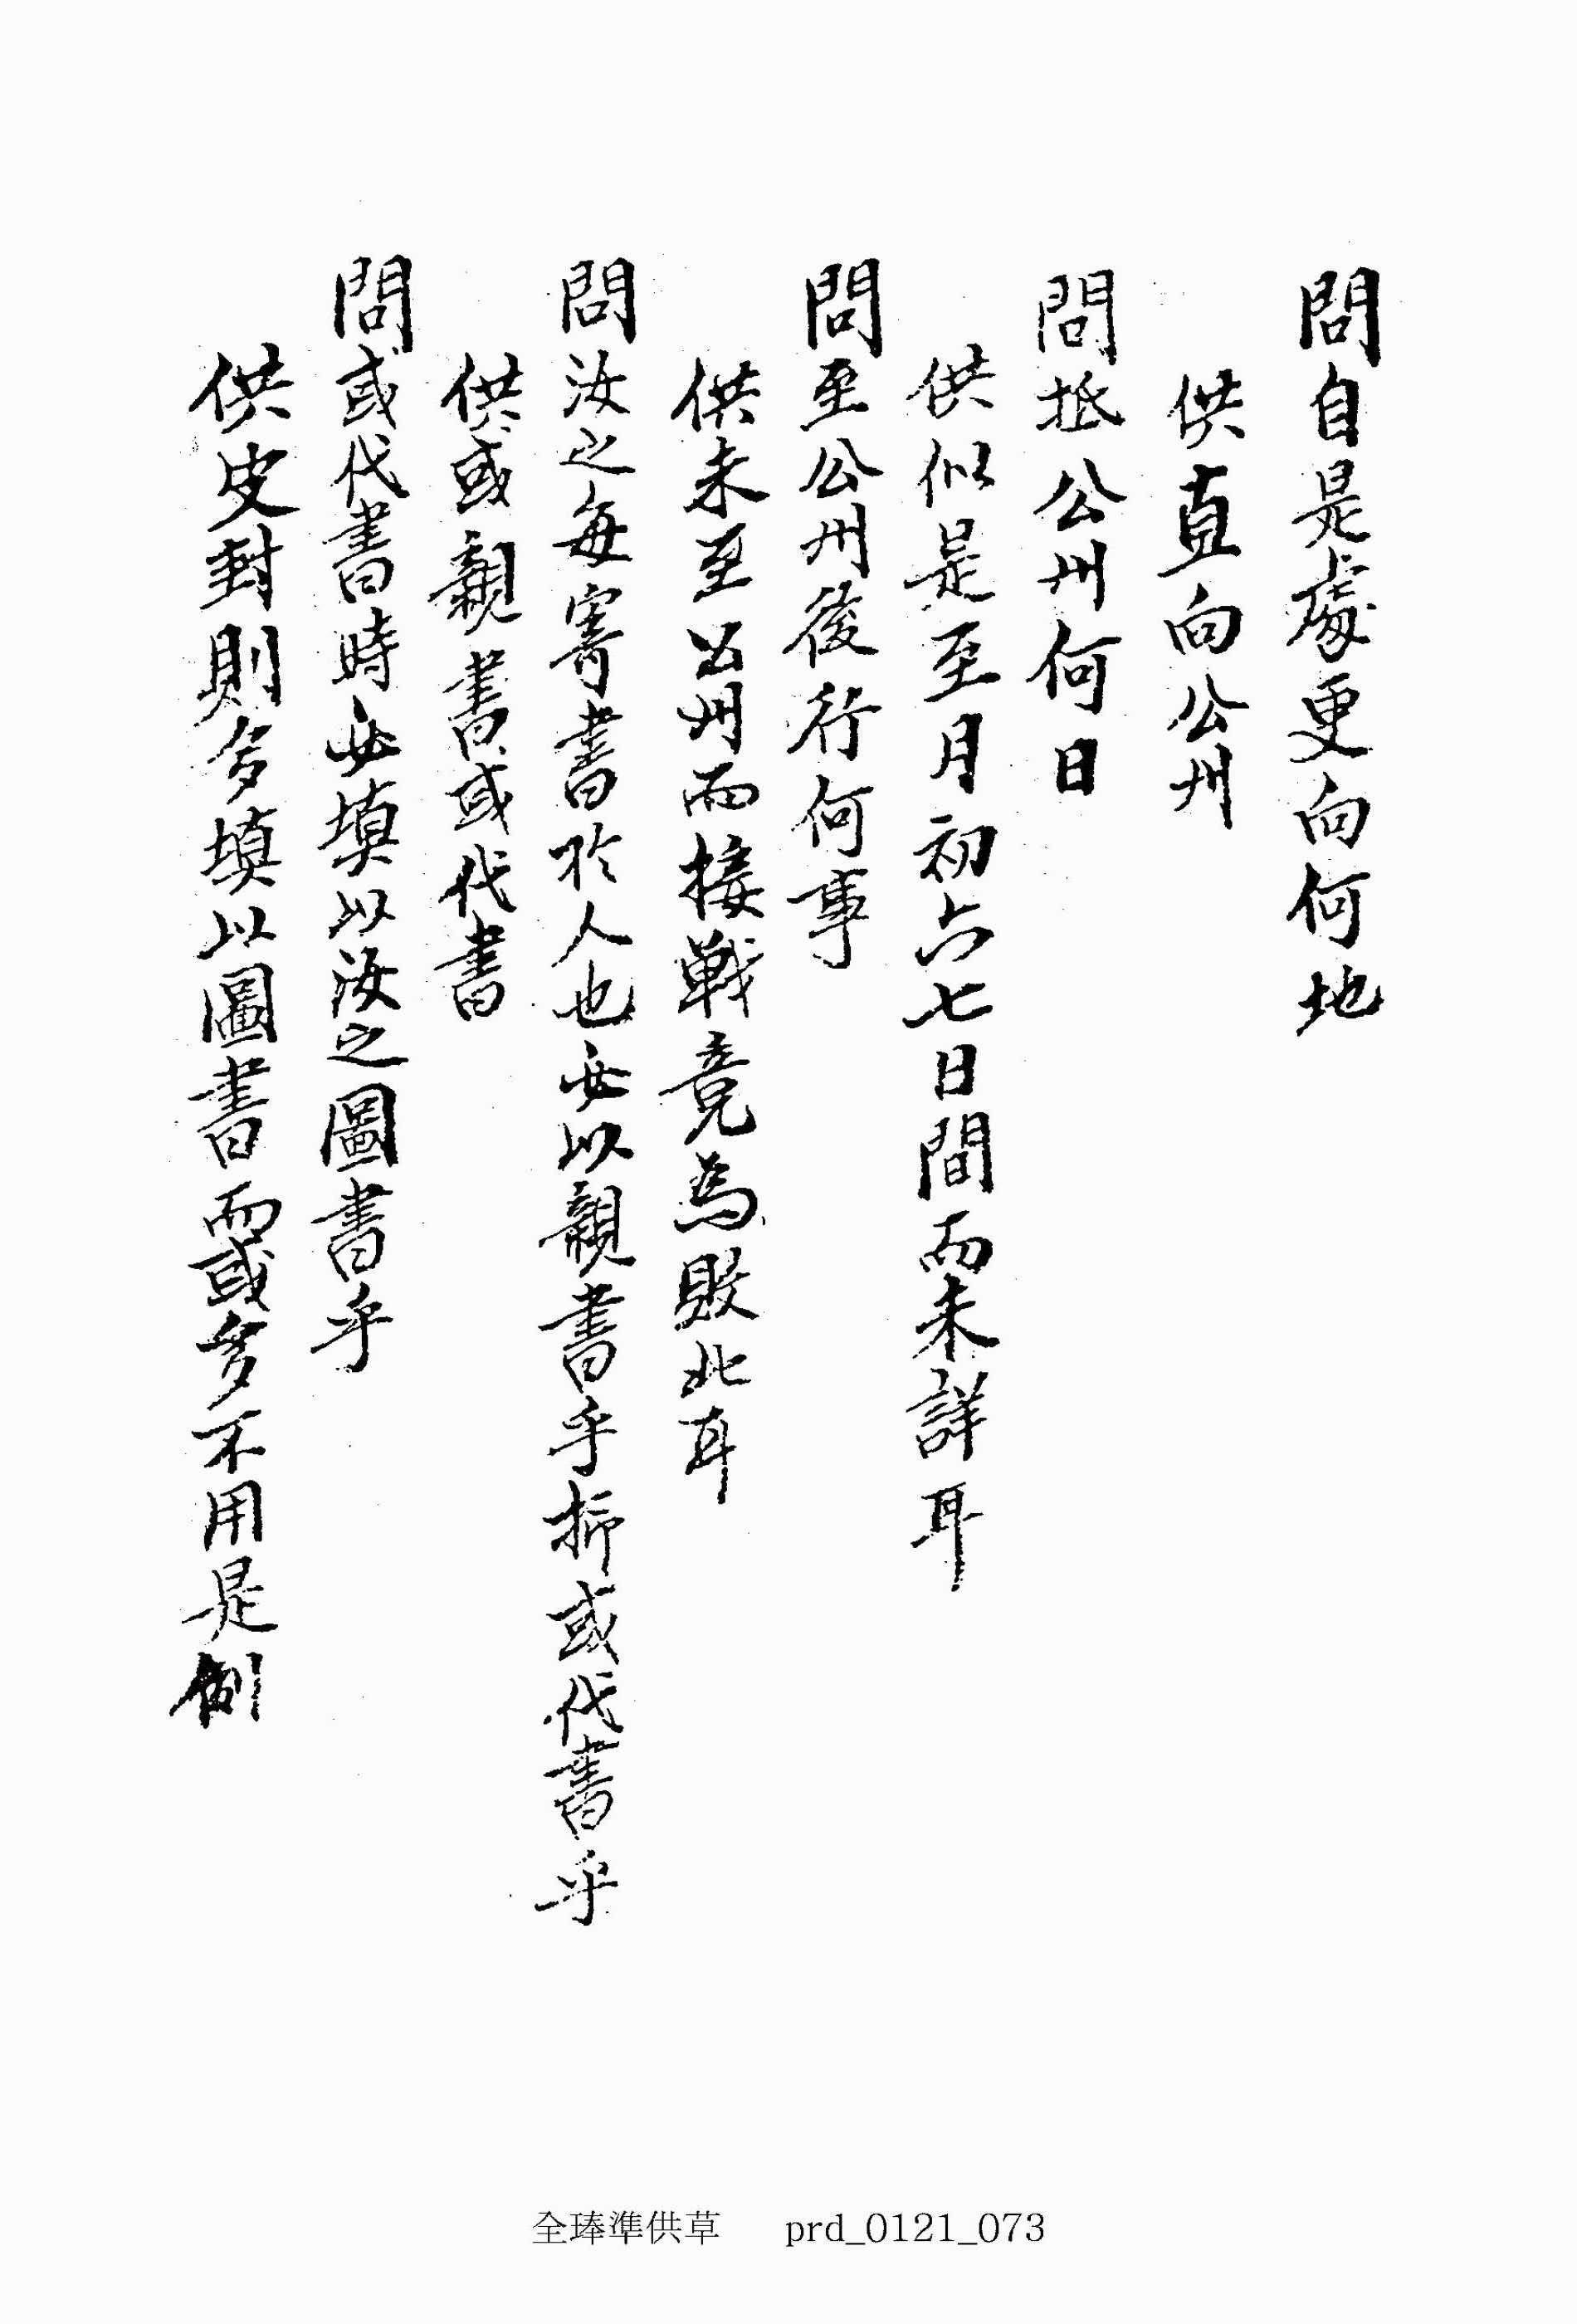 問自是處更向何地
供直向公州
問抵公州何日
供似是至月初六七日間而未詳耳
問至公州後行何事
供未至公州而接戰竟爲敗北耳
問汝之每寄書於人也必以親書乎抑或代書乎
供或親書或代書
問或代書時必塡以汝之圖書乎
供皮封則多塡以圖書而或多不用是例
全琫準供草 prd_0121_073